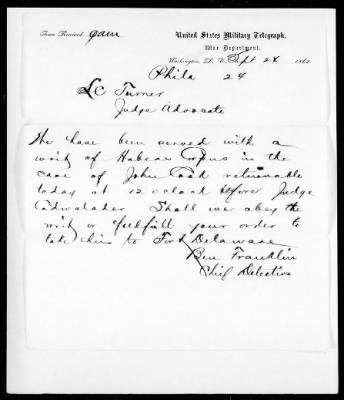 Time Received, 9 am United States Military Telegraph,
War Department.
Washington, D. C. Sept 24 1862.
Phila 24
LC Turner
Judge Advocate
We have been served with a
writ of Habeas Corpus in the
case of John Cook returnable
today at 12 oclock before Judge
Cadwalader Shall we obey the
writ or fulfill your order to
take him to Fort Delaware
Ben Franklin
Chief Detective